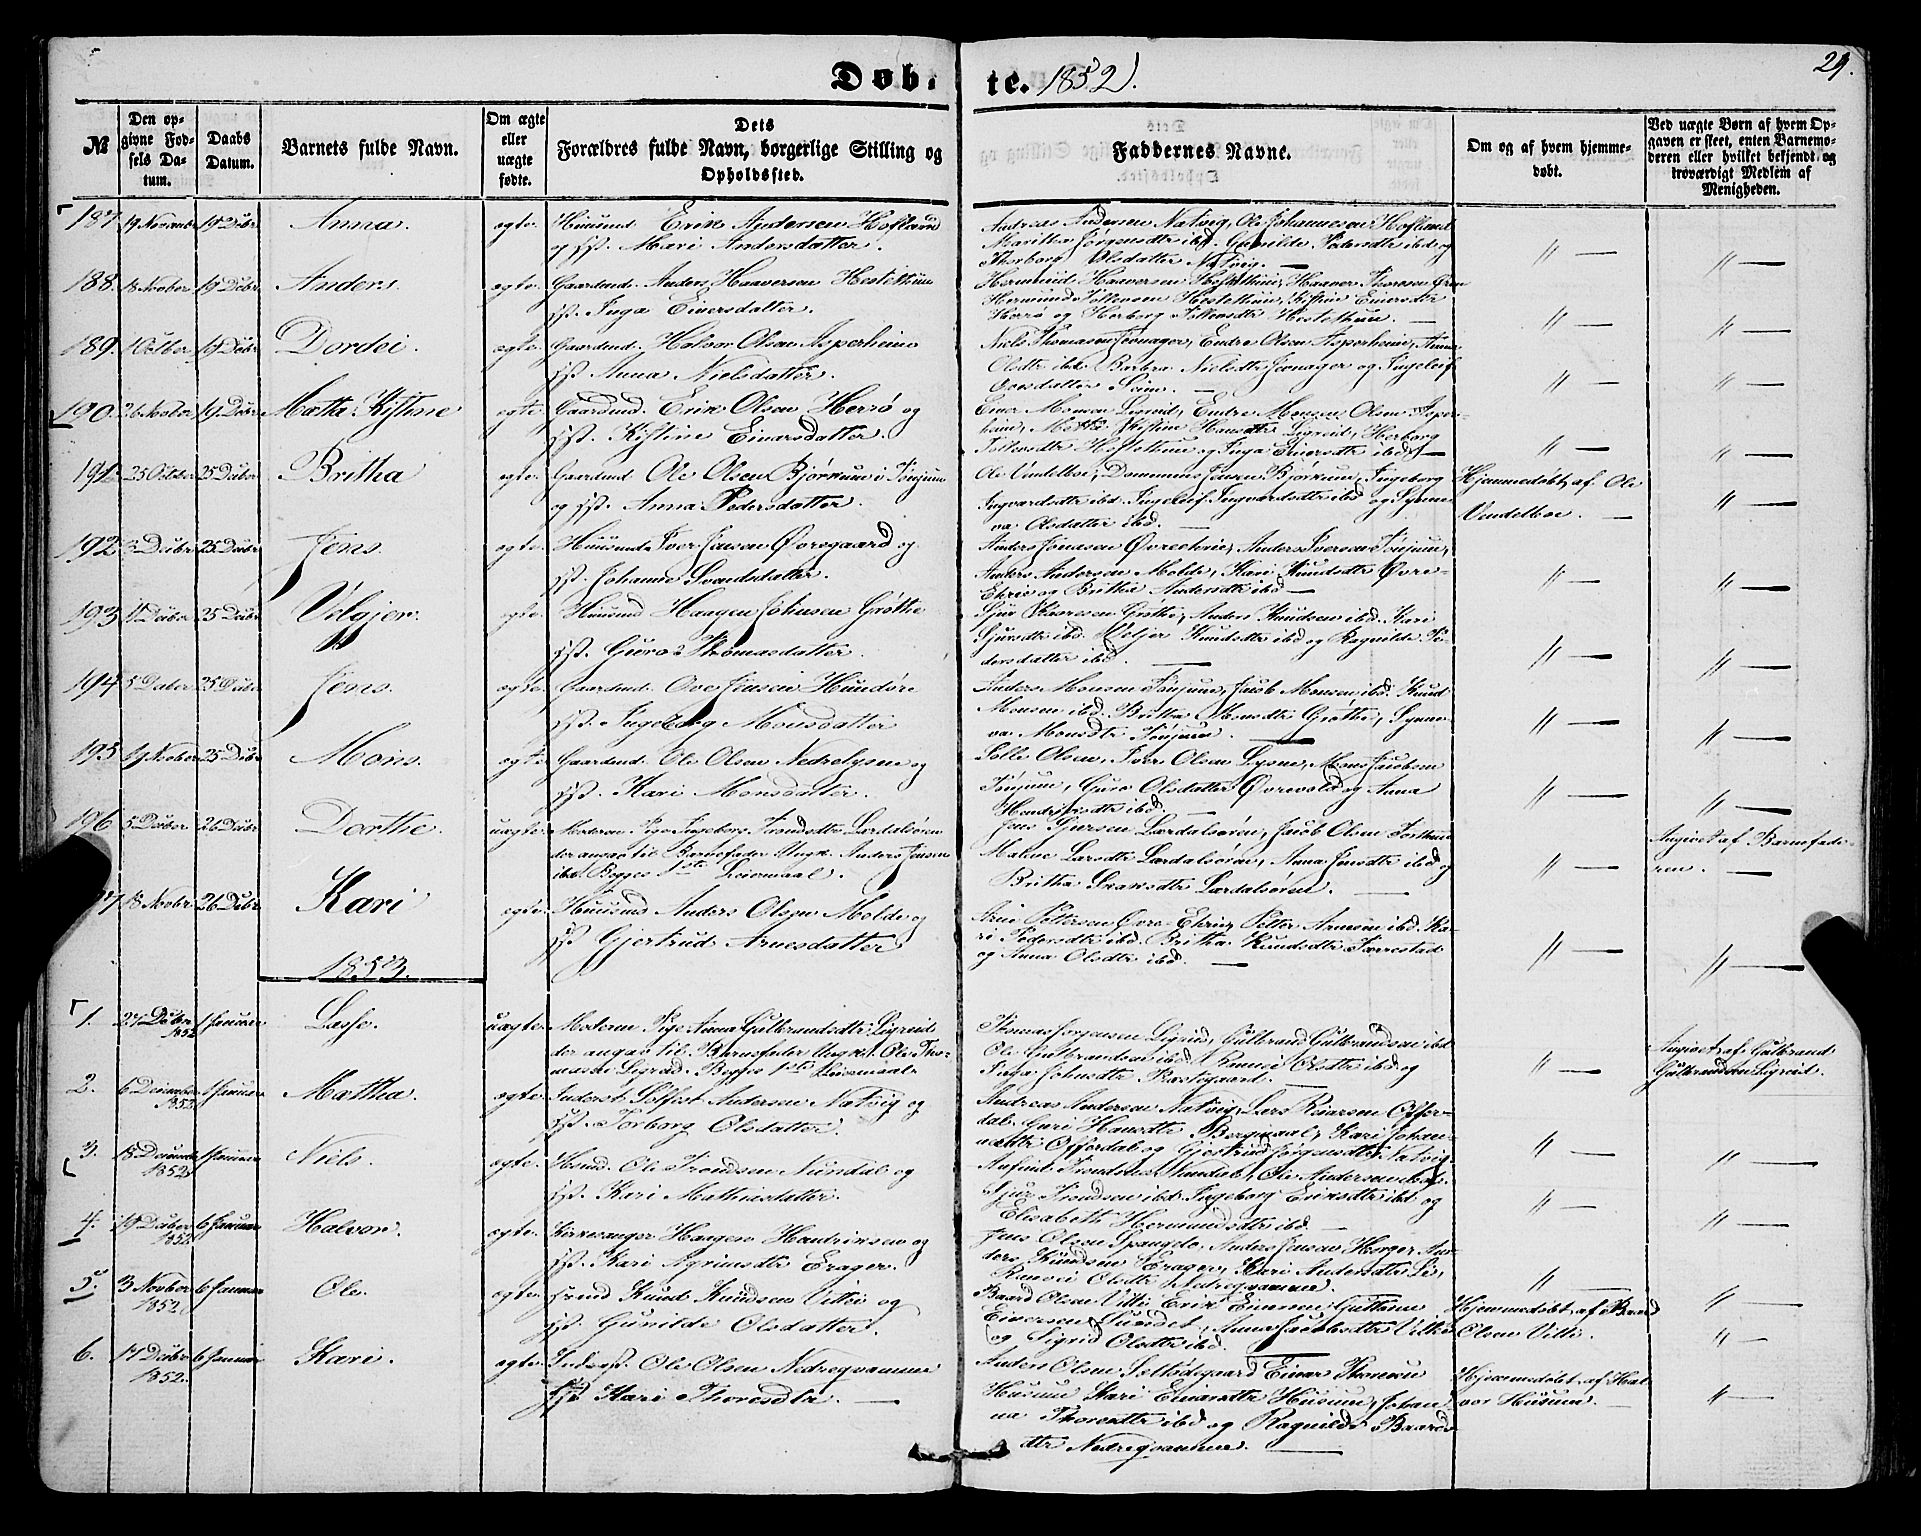 Døb- te. 1852. 29.
№
Den opgivne Fødsels Datum.
Daabs Datum.
Barnets fulde Navn.
Om ægte eller uægte fødte.
Dets Forældres fulde Navn, borgerlige Stilling og Opholdssted.
Faddernes Navne.
Om og af hvem hjemmedøbt.
Ved uægte Børn af hvem Opgaven er skeet, enten Barnemoderen eller hvilket bekjendt og troværdigt Medlem af Menigheden.
187. 19 Novembr 19 Debr Anna. ægte. Huusmd Erik Andersen Hofland
og Hst. Mari Andersdatter.
Andreas Andersen Natvig, Ole Johannesen Hofland
Maritta Jørgensdtr ibd. Gunilde Pedersdtr ibd og
Thorborg Olsdatter Natvig. — " — " —
188. 18 Novber 19 Debr Anders. ægte. Gaardmd. Anders Haaversen Hestethun
Hst. Inga Einersdatter.
Hermund Haaversen Hestethun, Haaver Thoresen Øren
Hermund Folkesen Hestethun, Kistine Einersdtr
Herrø og Herborg Folkesdtr Hestethun. — " — " —
189. 1 Octber 19 Debr Dordei. ægte. Gaardmd. Halvor Olsen Asperheim
Hst. Anna Nielsdatter.
Niels Thomasen Hovnager, Endre Olsen Asperheim, Anna
Olsdtr ibd. Barbra Nielsdtr Hovnager og Ingeleif
Ovesdatter Seim. — " — " —
190. 26 Novber 19 Debr Mætha Kistine ægte. Gaardmd. Erik Olsen Herrø og
Hst. Kistine Einarsdatter.
Einer Monsen Ligreid, Endre Olsen Asper-
heim, Mette Kistine Hansdtr Ligreid, Herborg
Folkesdtr Hestethun og Inga Einersdtr ibd. — " — " —
191. 25 Octber 25 Debr Britha ægte. Gaardmd Ole Olsen Bjørkum i Tønjum
og Hst. Anna Pedersdatter.
Ole Vendelboe, Jensen Bjørkum, Ingeborg
Ingvardsdtr ibd. Ingeleif Ingvardsdtr ibd og Synne-
va Olsdatter ibd. —
Hjemmedøbt af Ole
Vendelboe. — " —
192. 3 Debr 25 Debr Jens. ægte. Huusmd Iver Jensen Øvregaard og
Hst. Johanne Svendsdatter.
Anders Jonasen Øvreehrie, Anders Iversen Tønjum,
Anders Andersen Molde, Kari Knudsdtr Øvre-
Ehrie og Britha Andersdtr ibd — " — " —
193. 11 Debr 25 Debr Velgjer. ægte. Huusmd Haagen Johnsen Grøthe
Hst. Guro Thomasdatter.
Sjur Grøthe, Anders Knudsen ibd. Kari
Sjursdtr ibd. Velgjer Knudsdtr ibd og Ragnilde Pe-
dersdatter ibd. — " — " —
194 5 Debr 25 Debr Jens. ægte. Gaardmd. Ove Jensen Hundøre
Hst. Ingeborg Monsdatter
Anders Monsen Tønjum, Jacob Monsen ibd. Knud
Monsen ibd. Britha Monsdtr Grøthe, Synne-
va Monsdtr Tønjum. — " — " —
195 19 Novber 25 Debr Mons. ægte. Gaardmd. Ole Olsen Nedrelysne og
Hst. Kari Monsdatter.
Olsen, Iver Olsen Lysne, Mons Jacobsen
Tønjum, Guro Olsdatter Øvrevold og Anna
Hendriksdtr ibd. — " — " —
196 5 Debr 26 Debr Dorthe. uægte. Moderen Pige Ingeborg Trondsdtr Lærdalsøren
der angav til Barnefader Ungk. Anders Jensen
ibd. Begges 1ste Leiermaal.
Jens Sjursen Lærdalsøren, Jacob Olsen
Larsdtr Lærdalsøren, Anna Jensdtr ibd og
Britha Lærdalsøren. — " —
Angivet af Barnefade-
ren. —
97 18 Novbr 26 Debr Kari ægte. Huusmd Anders Olsen Molde og
Hst Gjertrud Arnesdatter
Arne Pettersen Øvre-Ehrie, Petter Arnesen ibd. Ka-
ri Pedersdtr ibd. Britha Knudsdtr Færrestad
og Anna Olsdtr ibd. — " — " —
1853.
1. 27 Debr 1852 1 Januar Lasse. uægte. Moderen Pige Anna Gulbrandsdtr Ligreid
der angav til Barnefader Ungk. Ole Tho-
massen Ligreid. Begges 1ste Leiermaal.
Thomas Jørgensen Ligreid, Gulbrand Gulbrandsen ibd.
Ole Gulbrandsen ibd. Ranvei Olsdtr ibd og
Inga Johnsdtr Bæstegaard. — " —
Angivet af Gulbrand
Gulbrandsen Ligreid.
2. 6 December 1852. 1 Januar Mattha. ægte. Inderst Andersen Natvig og
Hst. Torborg Olsdatter.
Andreas Andersen Natvig, Lars Reiarsen Offer-
dal. Guri Hansdtr Bergmaal, Kari Johan-
nesdtr Offerdal og Gjertrud Jørgensdtr Natvig. " — " —
3. 18 December 1852. 1 Januar Niels. ægte. Huusmd. Ole Trondsen Nundal og
Hst. Kari Mathiasdatter.
Anfind Trondsen Nundal, Ole Andersen ibd.
Sjur Trondsen ibd. Ingeborg Eriksdtr ibd og
Elisabeth Hermundsdtr ibd. — " — " —
4. 19 Debr 1852. 6 Januar Halvor. ægte. Kirkesanger Haagen Hendriksen og
Hst. Kari Erager.
Jens Olsen Spangelo, Anders Jensen Horger, An-
ders Knudsen Erager, Kari Andersdtr Lie,
Ranvei Olsdtr Nedreqvamme. " — " —
5. 3 Novber 1852. 6 Januar Ole. ægte. Knud Knudsen Vittie og
Hst. Gunilde Olsdatter.
Baard Olsen Vittie, Erik Einersen
Eiversen Sundet, Anna Jacobsdtr Vittie
og Sigrid Olsdtr ibd.
Hjemmedøbt af Baard
Olsen Vittie. " —
6. 17 Debr 1852. 6 Januar Kari. ægte. Inderst. Ole Olsen Nedreqvamme
Hst Kari Thoresdtr. —
Anders Olsen Einar Thoresen
Husum, Kari Einarsdtr Husum, Johan-
na Thoresdtr ibd og Ragnilde Baards-
dtr Nedreqvamme. —
Hjemmedøbt af Hal-
vor Husum. — " —